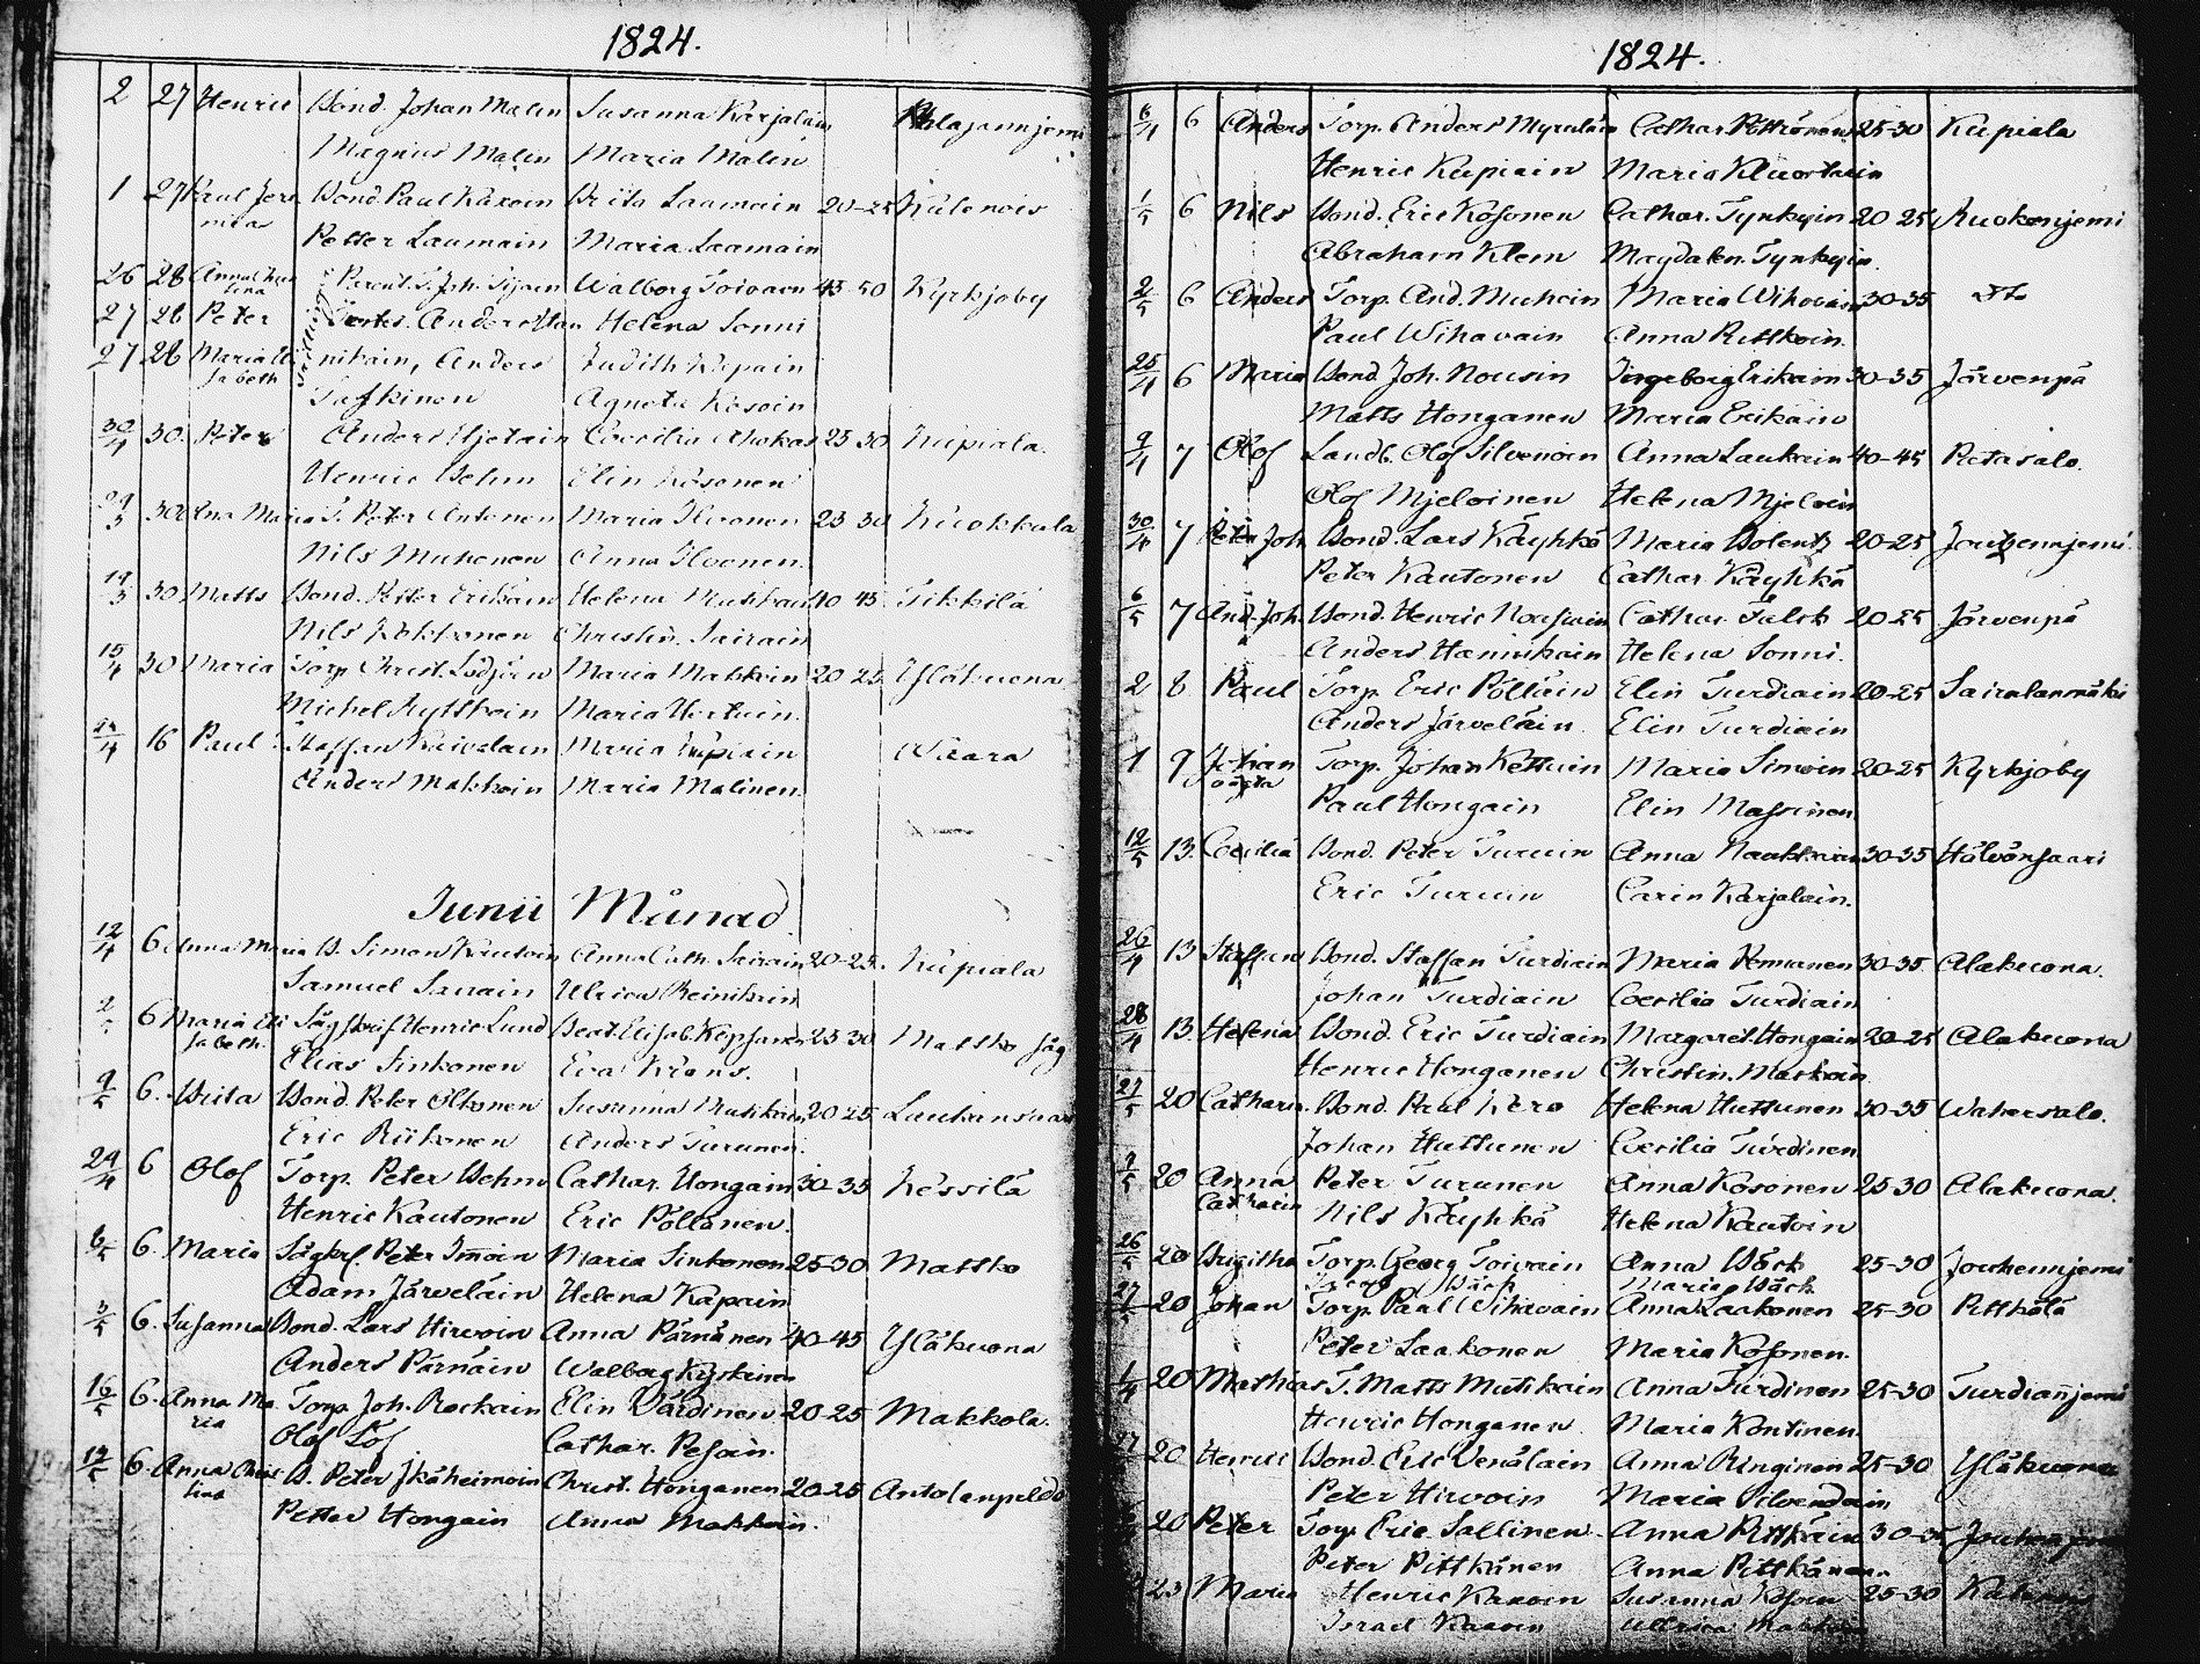 1824.
2 27 Henric Bond. Johan Malin Susanna Karjalain
Magnus Malin Maria Malin
1 27 Paul Jere Bond. Paul Karoin Brita Laamain 20-25
mias Petter Laamain Maria Laamain
26 28 Anna Chris Walborg Toivaen 45-50 Kyrkjoby
tina
27 28 Peter Anders Helena Sonni
27 28 Maria Eli nikäin, Anders Judith Kupain
sabeth Taskinen Agneta Kosoin
30/4 30. Peter Anders Hjetain Coecilia Ahokas 25 30 Kupiala.
Henric Behm Elin Kosonen
29/3 30 Anna Maria T. Peter Antonen Maria Iloonen 25 30 Kuokkala
Nils Muhonen Anna Iloonen.
19/3 30 Matts Bond. Petter Erikäin Helena Mutikain 40 45 Tikkilä
Nils Kokkonen Christin. Sairain
15/4 30 Maria Torp. Christ. Maria Makkoin 20 25 Yläkuona
Michel Kyttkoin Maria
24/4 16 Paul Staffan Maria Kupiain Waara
Anders Makkoin Maria Malinen.
Junii Månad.
12/4 6 Anna Maria B. Simon Kautoin Anna Cath. Sairain 20-25. Kupiala
Samuel Sairain Ulrica Reinikain
2/5 6 Maria Eli Henric Lund Beat. Elisab. 25 30 Mattko Såg
sabeth. Elias Sinkonen Eva Kröns.
9/5 6. Brita Bond. Peter Olkonen Susanna Mutikain 20-25 Laukansaari
Eric Riikonen Anders Turunen.
29/4 6 Olof Torp. Peter Behm Cathar. Hongain 30-35 Kessilä
Henric Kautonen Eric Pöllänen.
6/5 6. Maria Sågkl. Peter Imoin Maria Sinkonen 25-30 Mattko
Adam Järveläin Helena Kapain
3/5 6. Susanna Bond. Lars Hirvoin Anna Pärnänen 40-45 Yläkuona
Anders Pärnäin Walborg Kyskinen
16/5 6. Anna Ma Torp. Joh. Rockain Elin Värdinen 20-25 Makkola.
ria Olof Löf Cathar. Pesoin.
6. Anna Chris B. Peter Ikäheimoin Christ. Honganen 20-25 Antolanpeldo
tina Petter Hongain Anna Makkoin.
1824.
6/4 6 Anders Torp. Anders Cathar. Pettronen 25-30 Kupiala
Henric Kupiain Maria Kluortain
1/5 6 Nils Bond. Eric Kosonen Cathar. Tynkyin 20 25 Ruokonjemi
Abraham Klem Magdalen. Tynkyin.
2/5 6 Anders Torp. And. Muhoin Maria Wihavain 30-35 Dto
Paul Wihavain Anna Rettkoin.
25/4 6 Maria Bond Joh. Nousin Ingeborg Erikain 30-35 Järvenpä
Matts Honganen Maria Erikäin
9/4 7 Olof Landb. Olof Silvenoin Anna Laukain 40-45 Ratasalo.
Olof Mjeloinen Helena Mjeloin
30/4 7 Peter Joh Bond. Lars Käyhkö Maria Bolentz 20-25 Jouhennjemi.
Peter Kautonen Cathar. Käyhkö
6/5 7 And. Joh Bond. Henric Nousiain Cathar. Falck 20 25 Järvenpä
Anders Hännikäin Helena Sonni.
2 8 Paul Torp. Eric Pölläin Elin Turdiain 20-25 Sairalanmäki
Anders Järveläin. Elin Turdiain
1 9 Johan Torp. Johan Kettuin Maria Simoin 20-25 Kyrkjoby
oägta Paul Hongain Elin Massinen.
12/5 13. Coecilia Bond. Peter Turuin Anna Naukkarin 30-35 Hälvänsaari
Eric Turuin Carin Karjalain.
26/4 13 Staffan Bond. Staffan Turdiain Maria Pennanen 30-35. Alakuona.
Johan Turdiain Coecilia Turdiain
28/4 13. Helena Bond. Eric Turdiain Margaret. Hongain 20-25 Alakuona
Henric Honganen Christin. Maskoin
27/5 20 Catharin. Bond. Paul Kero Helena Huttunen 30-35 Wahersalo.
Johan Huttunen Coecilia Turdinen.
9/5 20 Anna Peter Turunen Anna Kosonen 25 30 Alakuona.
Catharin Nils Käyhkö Helena Kautoin
26/5 20 Brigitha Torp. Georg Toivain Anna Bäck 25-30 Jouhennjemi
Georg Bäck Maria Bäck
27 20 Johan Torp. Paul Wihavain Anna Laakonen 25-30 Pittkälä
Peter Laakonen Maria Kosonen.
1/4 20 Mathias T. Matts Mutikain Anna Turdinen 25-30 Turdiannjemi
Henric Honganen Maria Kontinen.
20 Henric Bond. Eric Venäläin Anna Ringinen 25-30 Yläkuona
Peter Hirvoin Maria Silvendoin
20 Peter Torp. Eric Sallinen Anna Pittkäin 30-35
Peter Pittkänen Anna Pittkänen.
23 Maria Henric Karoin Susanna Kosoin 25-30
Israel Karoin Ullrica